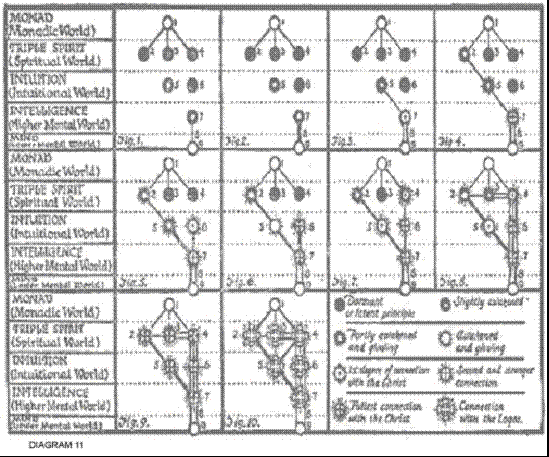 MONAD
(Monadic World)
TRIPLE SPIRIT
(Spiritual World)
INTUITION
(Intuitional World)
INTELLIGENCE
(Higher Mental World)
MIND
(Lower Mental World)
1
2 3 4
5 6
7
8
9
Fig.1.
Fig.2.
Fig.3.
Fig.4.
MONAD
(Monadic World)
TRIPLE SPIRIT
(Spiritual World)
INTUITION
(Intuitional World)
INTELLIGENCE
(Higher Mental World)
MIND
(Lower Mental World)
Fig.5.
Fig.6.
Fig.7.
Fig.8.
MONAD
(Monadic World)
TRIPLE SPIRIT
(Spiritual World)
INTUITION
(Intuitional World)
INTELLIGENCE
(Higher Mental World)
MIND
(Lower Mental World)
Fig.9.
Fig.10.
Dormant
or latent principle
Slightly awakened
Partly awakened
and glowing
Awakened
and glowing
1st degree of connection
with the Christ
Second and stronger
connection
Fullest connection
with the Christ
Connection
with the Logos.
DIAGRAM 11